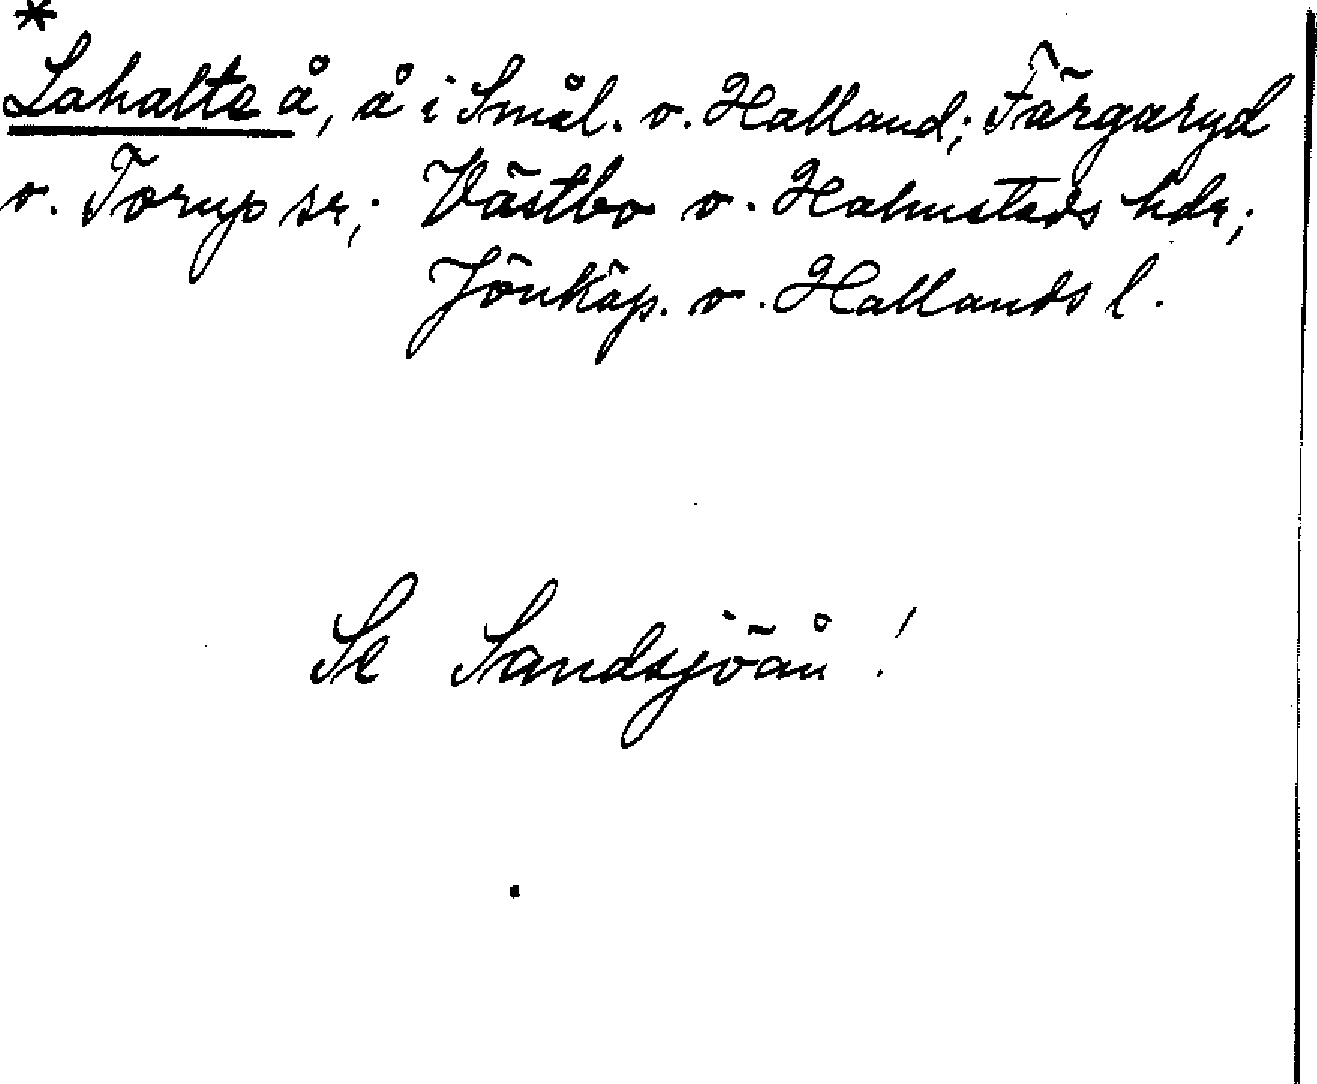 *
Lahalte å, å i Smål. o. Halland; Färgaryd
o. Torup sr; Västbo o. Halmstads hdr;
Jönköp. o. Hallands l.
Se Sandsjöån!